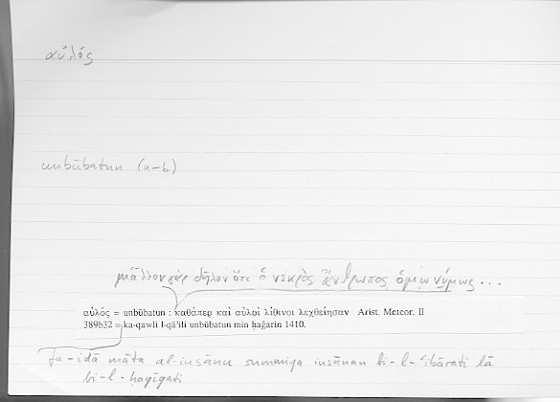 αὐλός
unbūbatun (a-b)
μᾶλλον γὰρ δῆλον ὅτι ὁ νεκρὸς ἄνθρωπος ὁμωνύμως ...
αὐλός = unbūbatun : καθάπερ καὶ αὐλοὶ λίθινοι λεχθείησαν Arist. Meteor. II
389b32 = ka-qawli l-qā'ili unbūbatun min ḥaǧarin 1410.
fa-iḏā māta al-insānu summiya insānan bi-l-ʿibārati lā
bi-l-ḥaqīqati